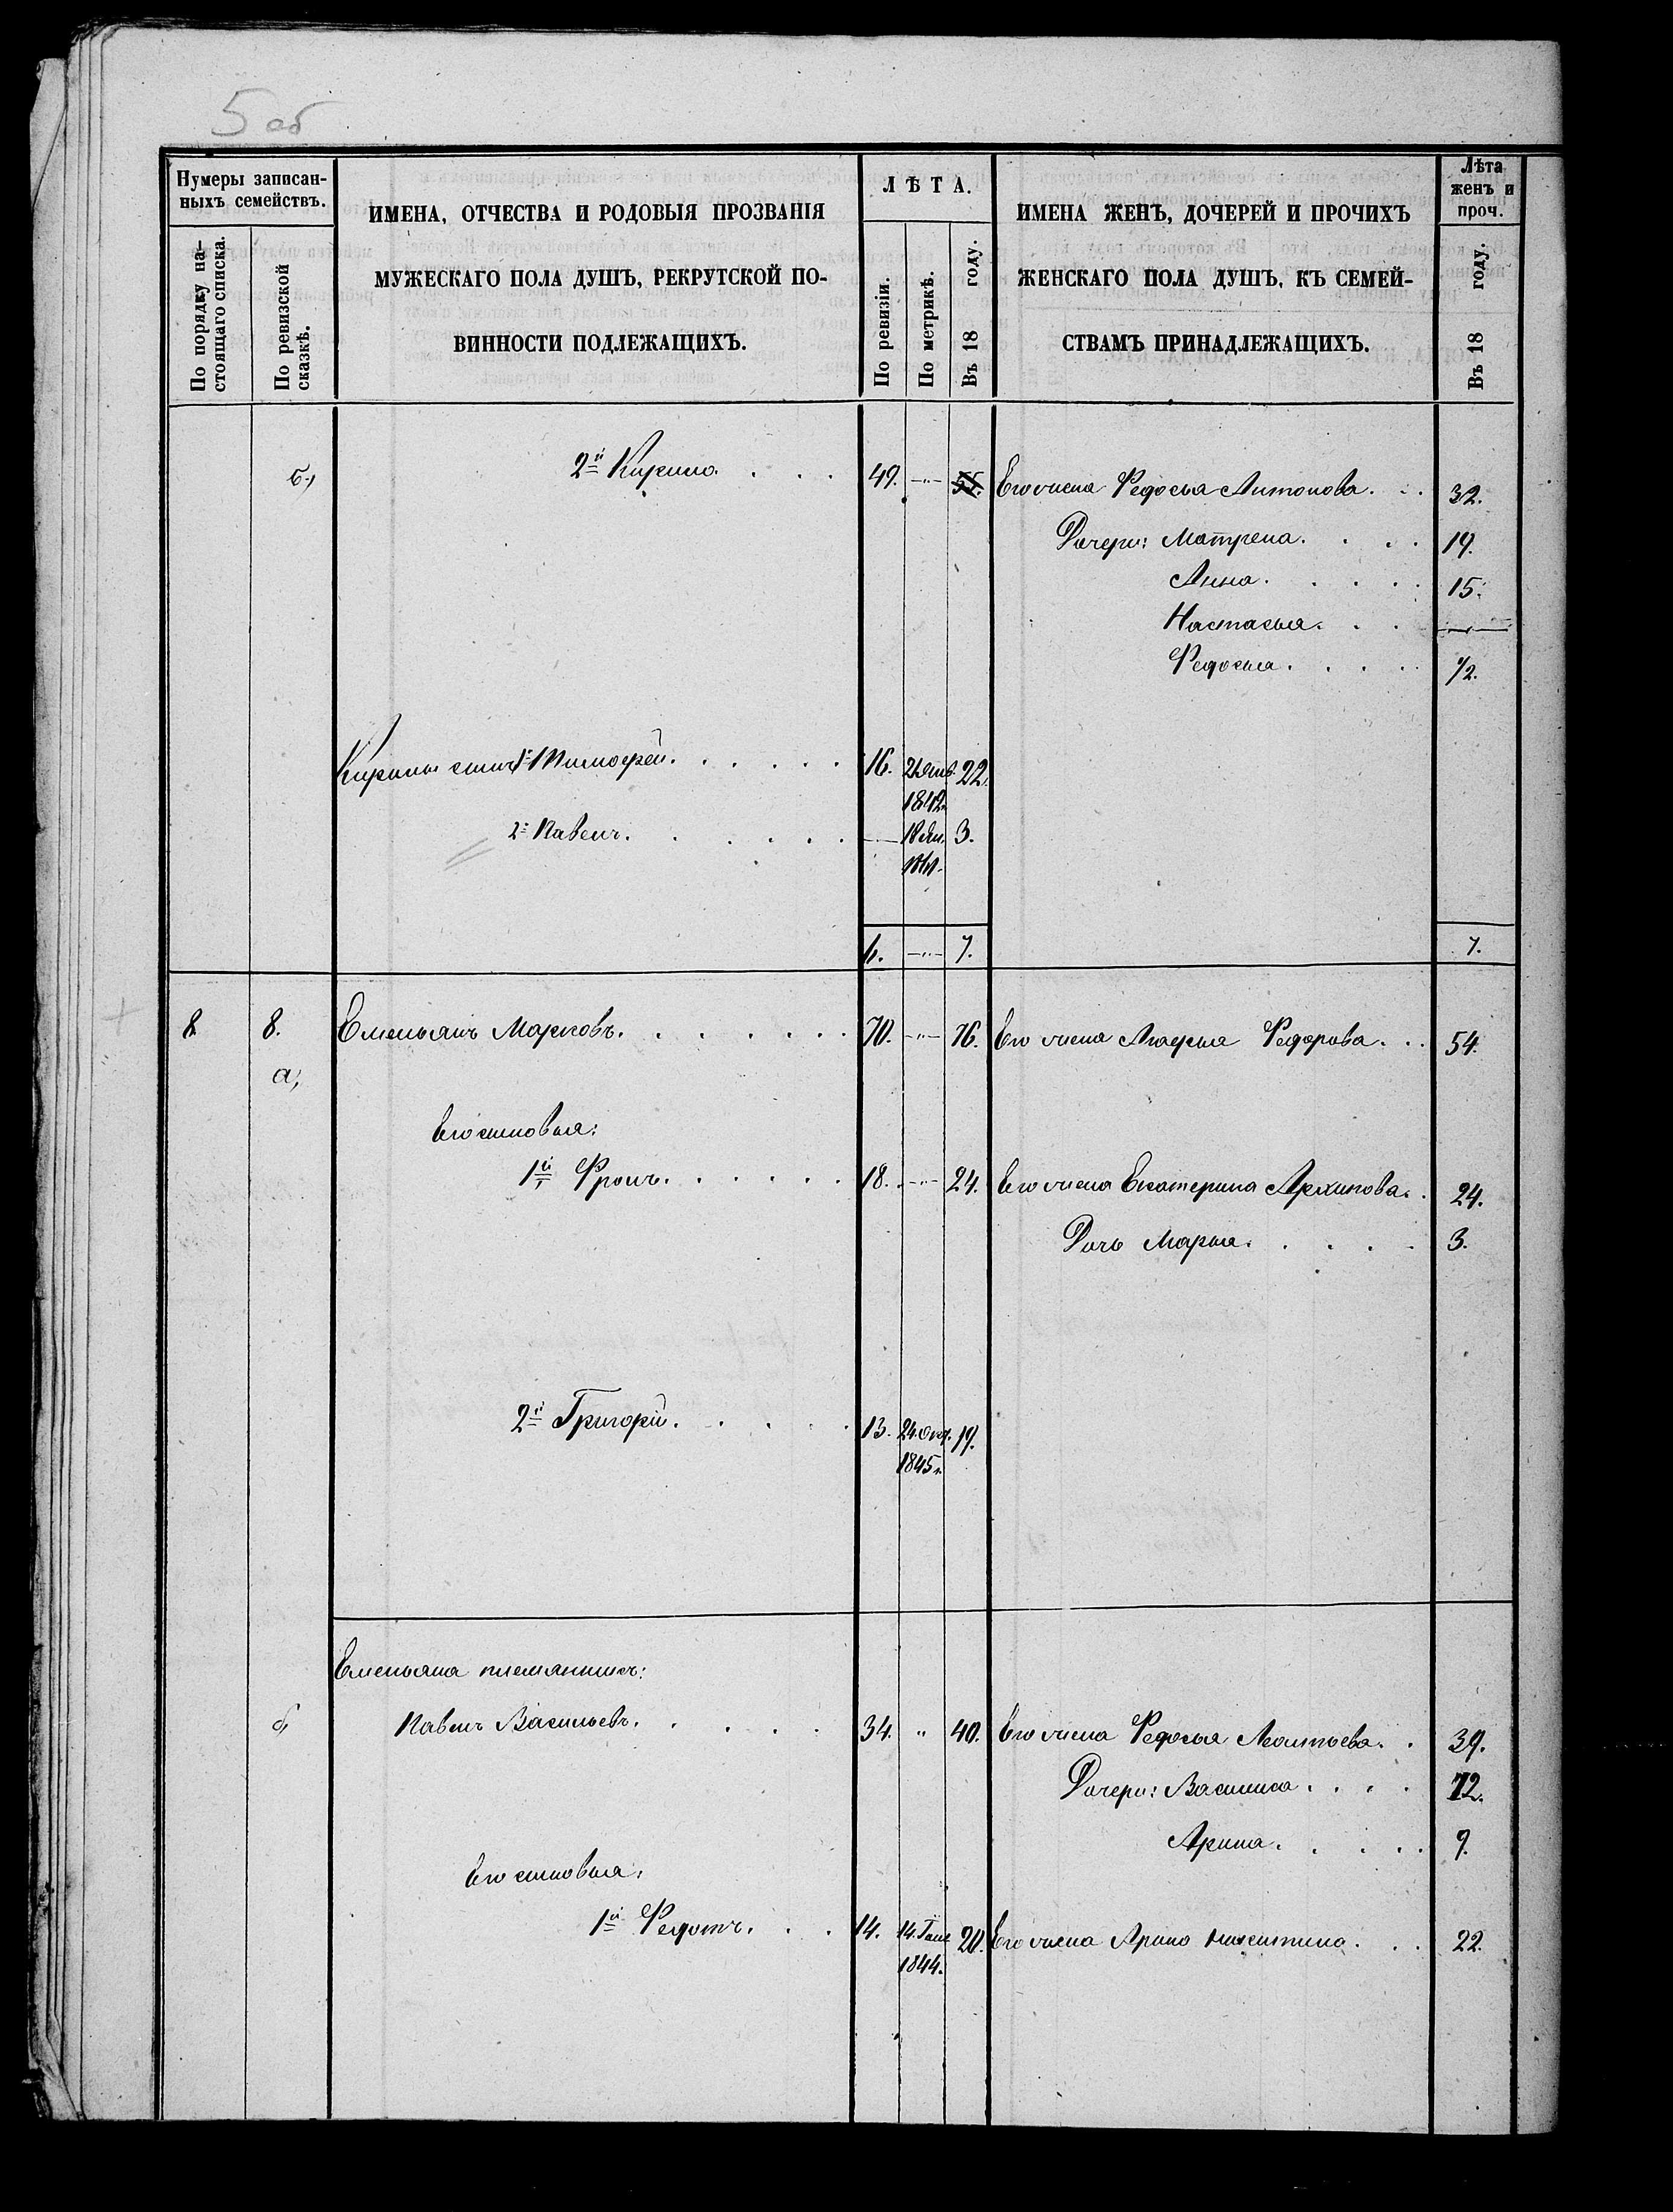 5 об
Нумеры записан-
ныхъ семействъ.
По порядку на-
стоящаго списка.
По ревизской
сказкѣ.
ИМЕНА, ОТЧЕСТВА И РОДОВЫЯ ПРОЗВАНІЯ
МУЖЕСКАГО ПОЛА ДУШЪ, РЕКРУТСКОЙ ПО-
ВИННОСТИ ПОДЛЕЖАЩИХЪ.
ЛѢТА.
По ревизіи.
По метрикѣ.
Въ 18 году.
ИМЕНА ЖЕНЪ, ДОЧЕРЕЙ И ПРОЧИХЪ
ЖЕНСКАГО ПОЛА ДУШЪ, КЪ СЕМЕЙ-
СТВАМЪ ПРИНАДЛЕЖАЩИХЪ.
Лѣта
женъ и
проч.
Въ 18 году.
б, 2й Кирило. . . . 49. —"— 55. Его жена Федосья Антонова. . . 32.
Дочери: Матрена. . . . 19.
Анна. . . . . 15.
Настасья. . . —"—
Федосья. . . . . 1/2.
Кирилы сынъ 1й Тимофей. . . . . . 16. 21 Янв. 22.
1842.
2й Павелъ. . . . . . — 18 Ян. 3.
1861.
6. —"— 7. 7.
8. 8. Емельянъ Марковъ. . . . . . . 70. —"— 76. Его жена Агафья Федорова. . . 54.
а,
Его сыновья:
1й Фролъ. . . . . . 18. —"— 24. Его жена Екатерина Архипова. . 24.
Дочь Марья. . . . . 3.
2й Григорій. . . . . 13. 24. Окт. 19.
1845 г.
Емельяна племянникъ:
б, Павелъ Васильевъ. . . . . . 34. " 40. Его жена Федосья Леонтьева. . 39.
Дочери: Василиса . . . . 12.
Арина. . . . . . 9.
Его сыновья:
1й Федотъ. . . . 14. 14. 20. Его жена Арина Никитина. . . 22.
1844.